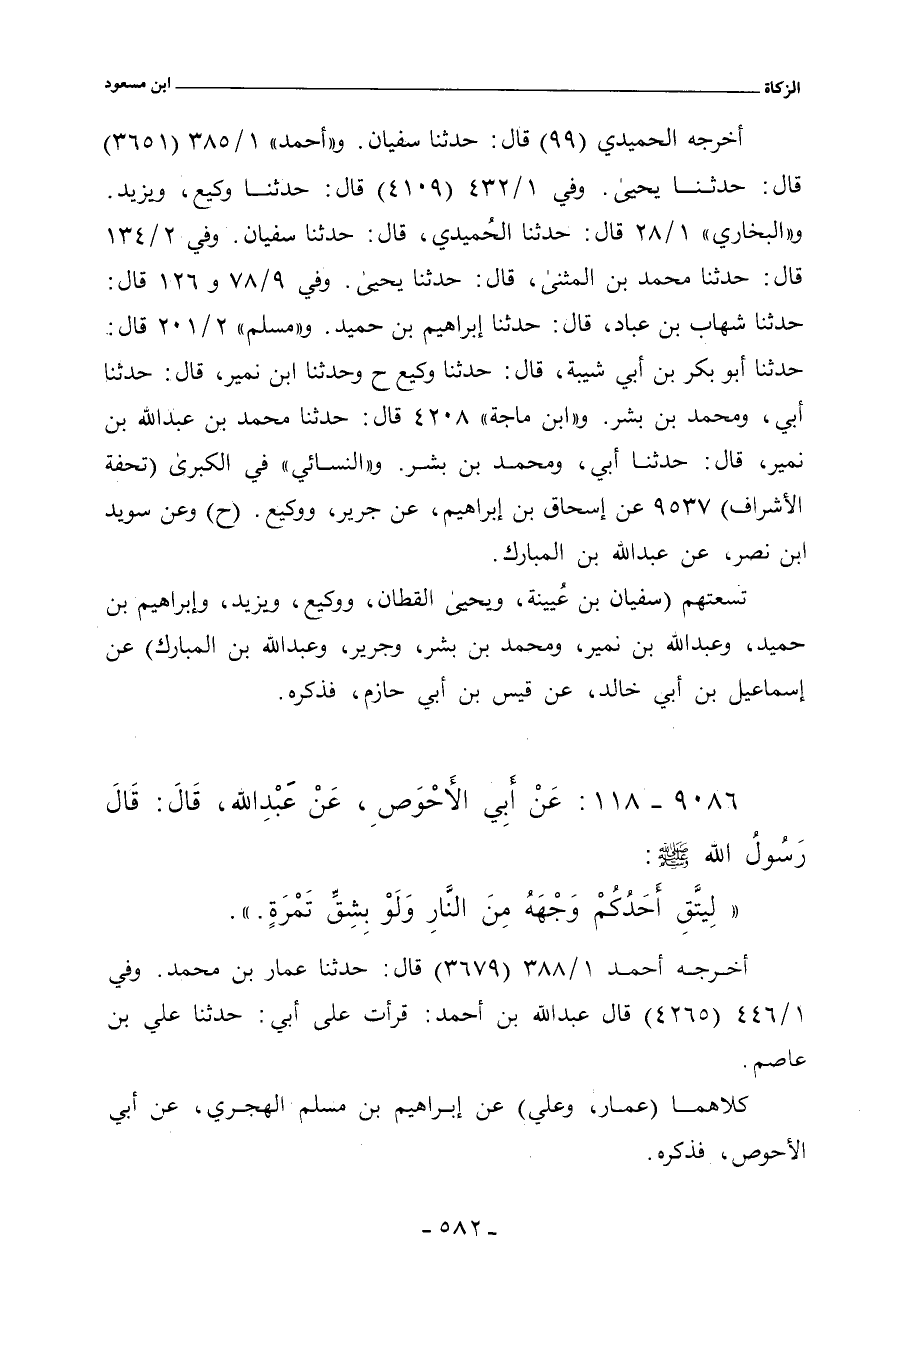 الزكاة ـــــــــــــــــــــــــــــــــــــــــ ابن مسعود
أخرجه الحميدي (٩٩) قال: حدثنا سفيان. و«أحمد» ٣٨٥/١ (٣٦٥١)
قال: حدثنا يحيىٰ. وفي ٤٣٢/١ (٤١٠٩) قال: حدثنا وكيع، ويزيد.
و«البخاري» ٢٨/١ قال: حدثنا الحُميدي، قال: حدثنا سفيان. وفي ١٣٤/٢
قال: حدثنا محمد بن المثنىٰ، قال: حدثنا يحيىٰ. وفي ٧٨/٩ و ١٢٦ قال:
حدثنا شهاب بن عباد، قال: حدثنا إبراهيم بن حميد. و«مسلم» ٢٠١/٢ قال:
حدثنا أبو بكر بن أبي شيبة، قال: حدثنا وكيع ح وحدثنا ابن نمير، قال: حدثنا
أبي، ومحمد بن بشر. و«ابن ماجة» ٤٢٠٨ قال: حدثنا محمد بن عبدالله بن
نمير، قال: حدثنا أبي، ومحمد بن بشر. و«النسائي» في الكبرىٰ (تحفة
الأشراف) ٩٥٣٧ عن إسحاق بن إبراهيم، عن جرير، ووكيع. (ح) وعن سويد
ابن نصر، عن عبدالله بن المبارك.
تسعتهم (سفيان بن عُيينة، ويحيىٰ القطان، ووكيع، ويزيد، وإبراهيم بن
حميد، وعبدالله بن نمير، ومحمد بن بشر، وجرير، وعبدالله بن المبارك) عن
إسماعيل بن أبي خالد، عن قيس بن أبي حازم، فذكره.
٩٠٨٦ ـ ١١٨: عَنْ أَبِي الأَحْوَصِ، عَنْ عَبْدِالله، قَالَ: قَالَ
رَسُولُ الله ﷺ:
« لِيَتَّقِ أَحَدُكُمْ وَجْهَهُ مِنَ النَّارِ وَلَوْ بِشِقِّ تَمْرَةٍ.».
أخرجه أحمد ٣٨٨/١ (٣٦٧٩) قال: حدثنا عمار بن محمد. وفي
٤٤٦/١ (٤٢٦٥) قال عبدالله بن أحمد: قرأت على أبي: حدثنا علي بن
عاصم.
كلاهما (عمار، وعلي) عن إبراهيم بن مسلم الهجري، عن أبي
الأحوص، فذكره.
ـ ٥٨٢ ـ